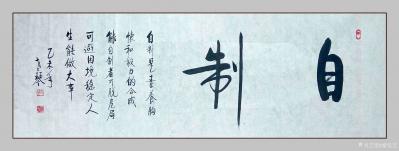 自制
自制是素养胸
怀和毅力的合成
能自制者可脱危局
可避困境稳定人
生能做大事
乙未年